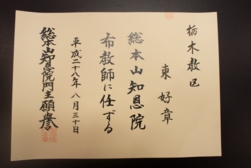 栃木教区
東好章
総本山知恩院
布教師に任ずる
平成二十八年八月三十日
総本山知恩院門主願譽